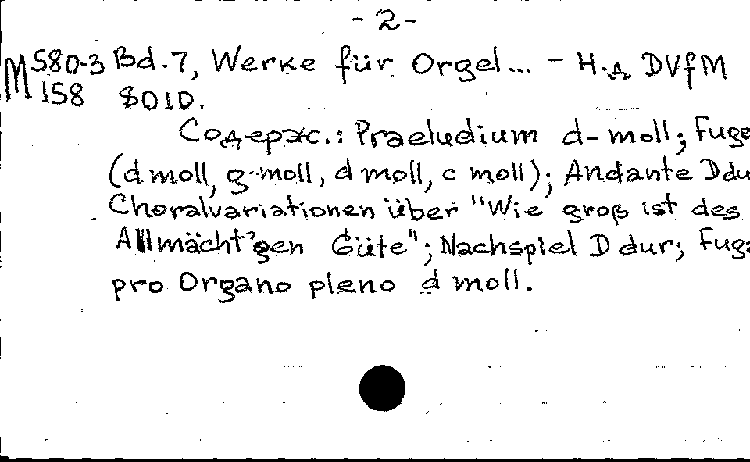 - 2 -
М 580-3 Bd. 7, Werke für Orgel... - Н.д DVfM
158 8010.
Содерж.: Praeludium d-moll; Fuge
(d moll, g-moll, d moll, c moll); Andante D du
Choralvariationen über "Wie groß ist des
Allmächt'gen Güte"; Nachspiel D dur; Fuga
pro Organo pleno d moll.